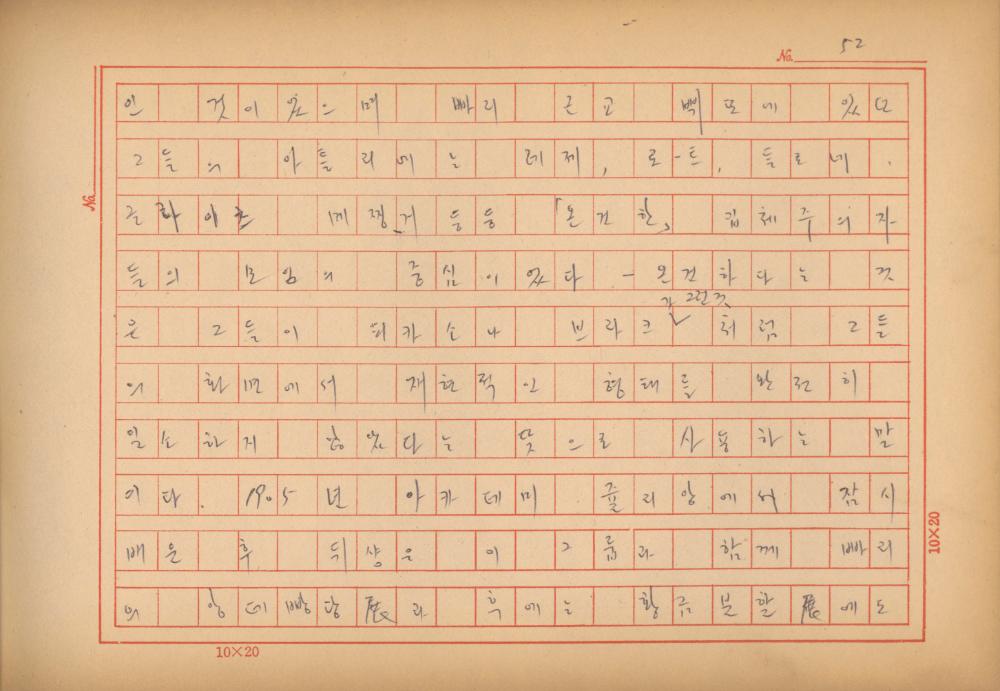 No. 52
인 것이 있으며 빠리 근교 뻑또에 있던
그들의 아틀리에는 레제, 로-트, 들로네.
글라이츠 메찡거 등등 「온건한」 입체주의자
들의 모임의 중심이었다 - 온건하다는 것
은 그들이 피카소나 브라크가 그런것처럼 그들
의 화면에서 재현적인 형태를 완전히
일소하지 않았다는 뜻으로 사용하는 말
이다. 1905년 아카데미 쥴리앙에서 잠시
배운 후 뒤샹은 이 그룹과 함께 빠리
의 앙데빵당展과 후에는 황금분할展에도
No.
10×20
10×20